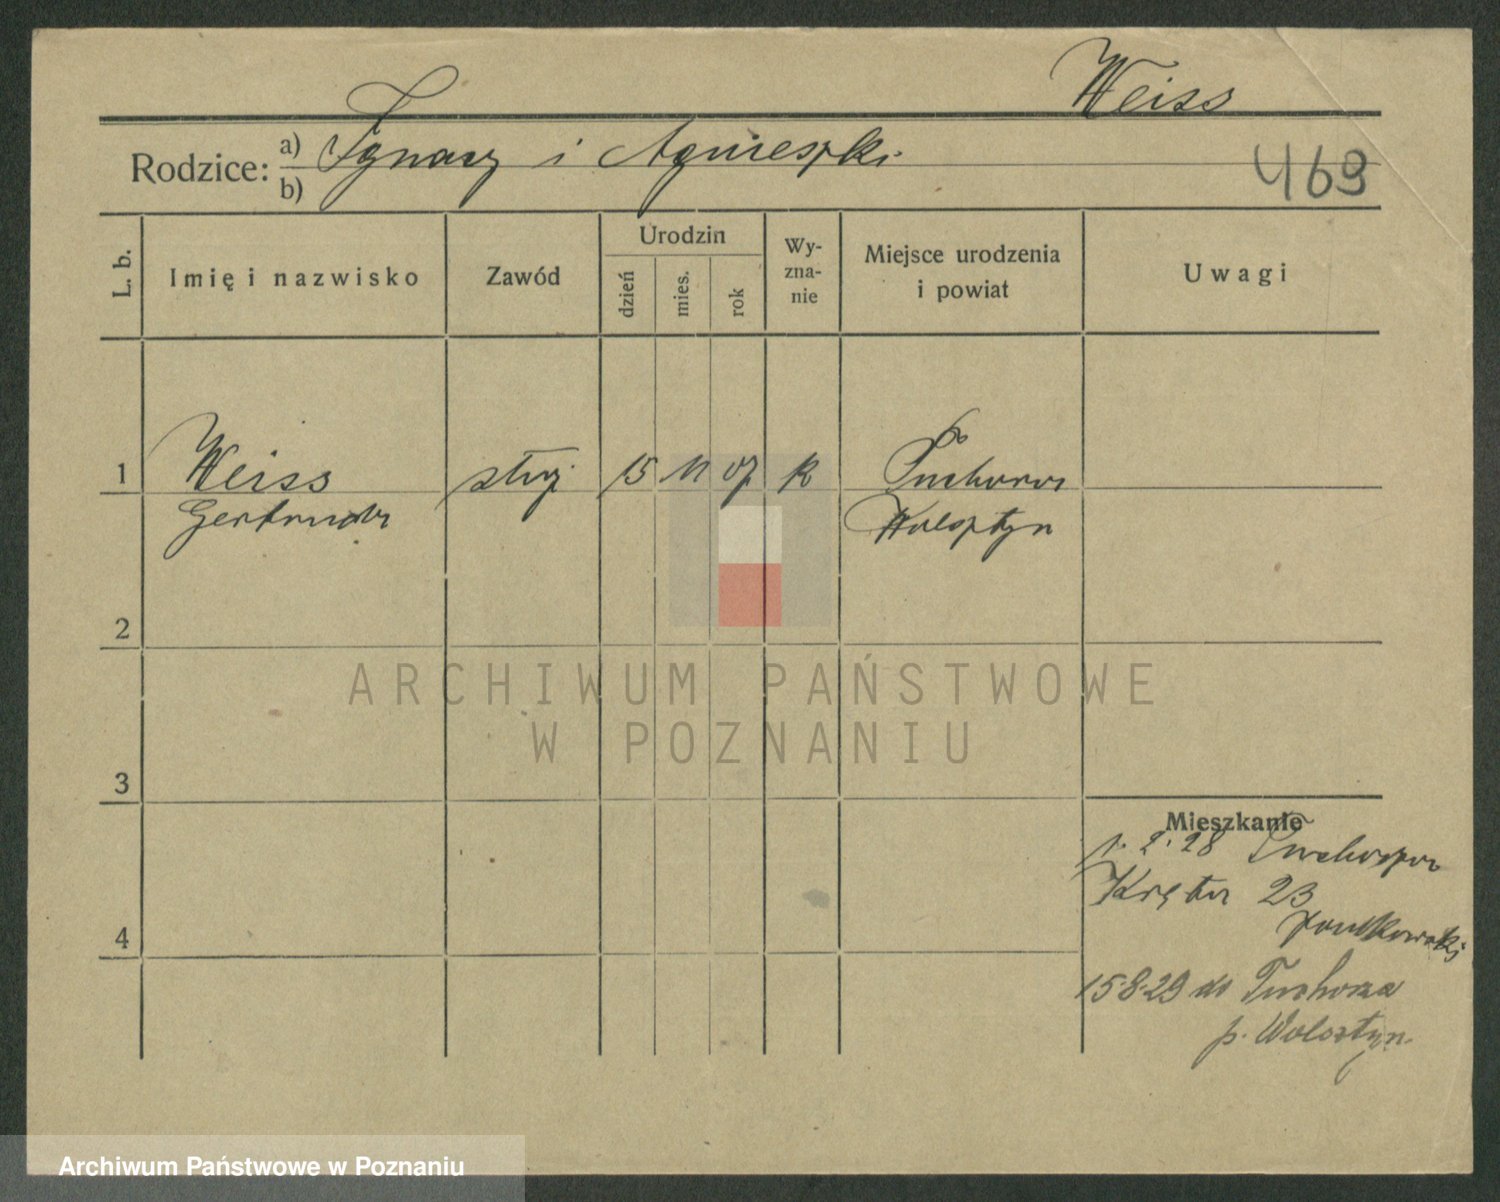 Weiss
Rodzice: a) Ignacy i Agnieszki
b)
469
L. b.
Imię i nazwisko
Zawód
Urodzin
dzień
mies.
rok
Wy-
zna-
nie
Miejsce urodzenia
i powiat
Uwagi
1
Weiss
Gertruda
służ
15
11
07
k
Tuchorza
Wolsztyn
2
3
4
Mieszkanie
1.2.28 Tuchorza
Kręta 23
15.8.29 do Tuchorza
p. Wolsztyn.
ARCHIWUM PAŃSTWOWE
W POZNANIU
Archiwum Państwowe w Poznaniu